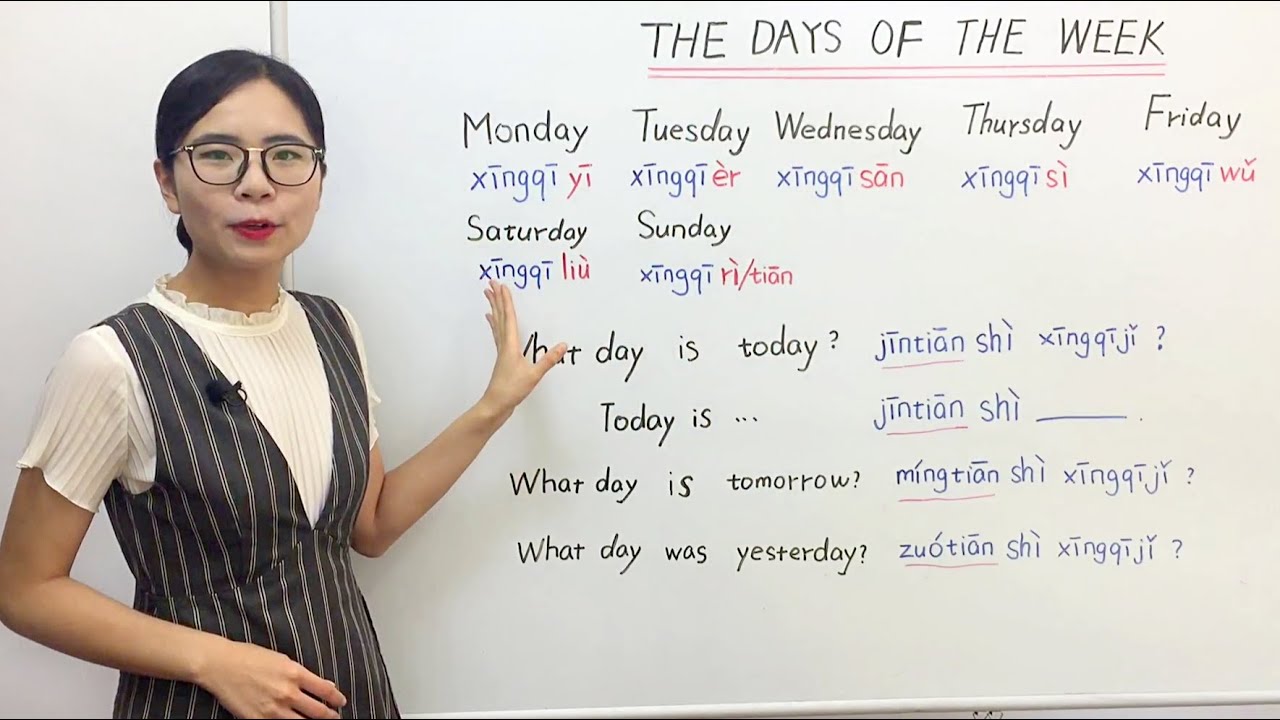 THE DAYS OF THE WEEK
Monday Tuesday Wednesday Thursday Friday
xīngqī yī xīngqī èr xīngqī sān xīngqī sì xīngqī wǔ
Saturday Sunday
xīngqī liù xīngqī rì/tiān
What day is today? jīntiān shì xīngqījǐ?
Today is ... jīntiān shì ______.
What day is tomorrow? míngtiān shì xīngqījǐ?
What day was yesterday? zuótiān shì xīngqījǐ?